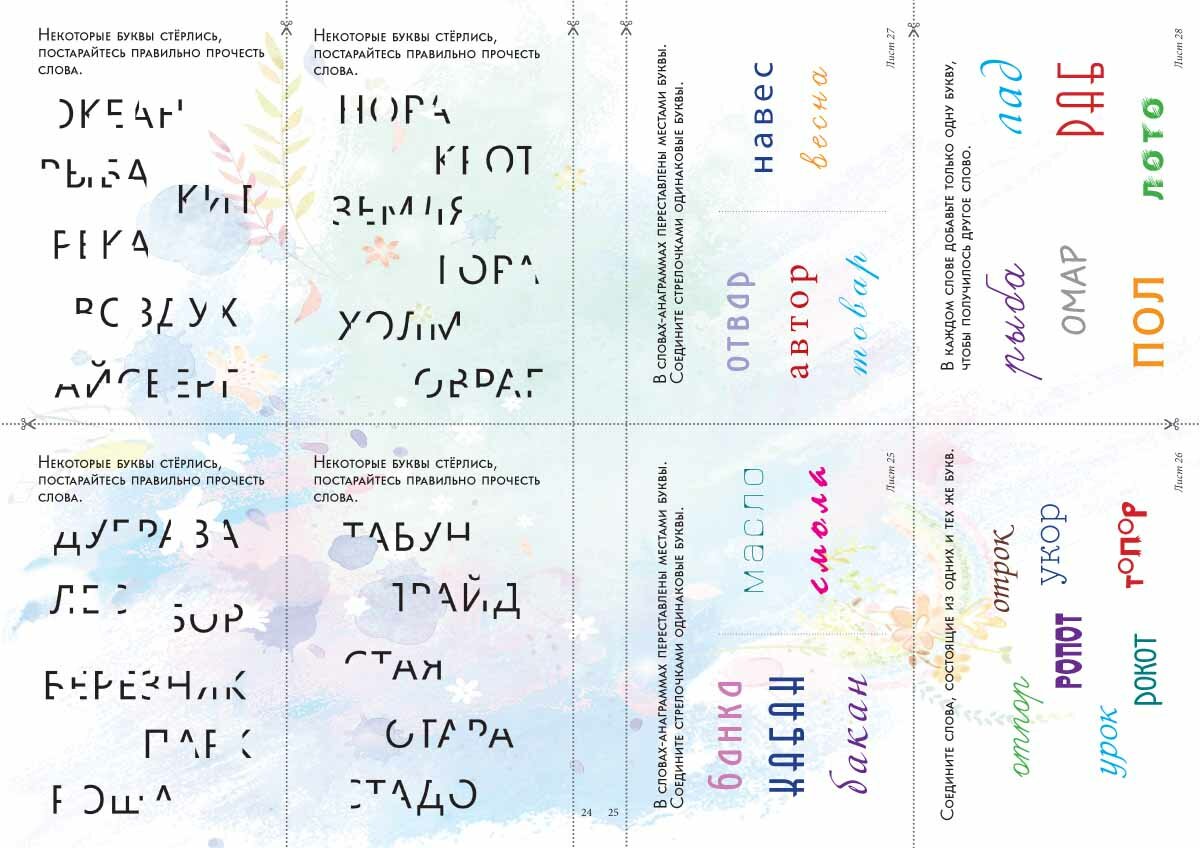 Некоторые буквы стёрлись,
постарайтесь правильно прочесть
слова.
ОКЕАН
РЫБА
КИТ
РЕКА
ВОЗДУХ
АЙСБЕРГ
Некоторые буквы стёрлись,
постарайтесь правильно прочесть
слова.
НОРА
КРОТ
ЗЕМЛЯ
ГОРА
ХОЛМ
ОВРАГ
Некоторые буквы стёрлись,
постарайтесь правильно прочесть
слова.
ДУБРАВА
ЛЕС
БОР
БЕРЕЗНЯК
ПАРК
РОЩА
Некоторые буквы стёрлись,
постарайтесь правильно прочесть
слова.
ТАБУН
ПРАЙД
СТАЯ
ОТАРА
СТАДО
24
25
В словах-анаграммах переставлены местами буквы.
Соедините стрелочками одинаковые буквы.
банка масло
КАБАН смола
бакан
Лист 25
Соедините слова, состоящие из одних и тех же букв.
отпор отрок
РОПОТ укор
урок рокот топор
Лист 26
В словах-анаграммах переставлены местами буквы.
Соедините стрелочками одинаковые буквы.
отвар навес
автор весна
товар
Лист 27
В каждом слове добавьте только одну букву,
чтобы получилось другое слово.
рыба лад
ОМАР РАБ
ПОЛ ЛОТО
Лист 28